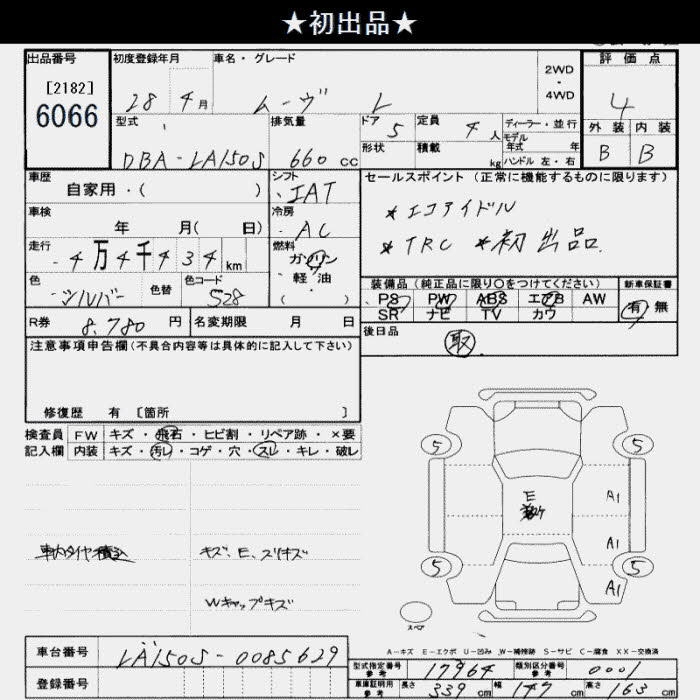 ★初出品★
出品番号 初度登録年月 車名・グレード 2WD ・ 4WD 評価点
[2182]
6066
28 4月 ムーヴ L 4
型式 排気量 ドア 5 定員 4人 ディーラー・並行 外装 内装
モデル年式 年
DBA-LA150S 660cc 形状 積載 kg ハンドル 左・右 B B
車歴 シフト セールスポイント(正常に機能するものに限ります)
自家用・( ) IAT
車検 冷房 *エコアイドル
年 月( 日) AC *TRC *初出品
走行 燃料
4万4千434km ガソリン
色 色替 色コード ・軽・油 装備品(純正品に限り○をつけてください) 新車保証書
シルバー 528 ( ) PS PW ABS エアB AW 有 無
SR ナビ TV カワ
R券 8,780円 名変期限 月 日 後日品
取
注意事項申告欄(不具合内容等は具体的に記入して下さい)
修復歴 有 [箇所 ]
検査員 FW キズ・飛石・ヒビ割・リペア跡・×要
記入欄 内装 キズ・汚レ・コゲ・穴・スレ・キレ・破レ
5 5
E A1
車内タイヤ積込 キズ、E、スリキズ A1
5 5
A1
Wキャップキズ
スペア
A-キズ E-エクボ U-凹み W-補修跡 S-サビ C-腐食 XX-交換済
車台番号 LA150S-0085629 型式指定番号 参考 17964 類別区分番号 参考 0001
登録番号 車庫証明用 参考 長さ 339cm 幅 147cm 高さ 163cm